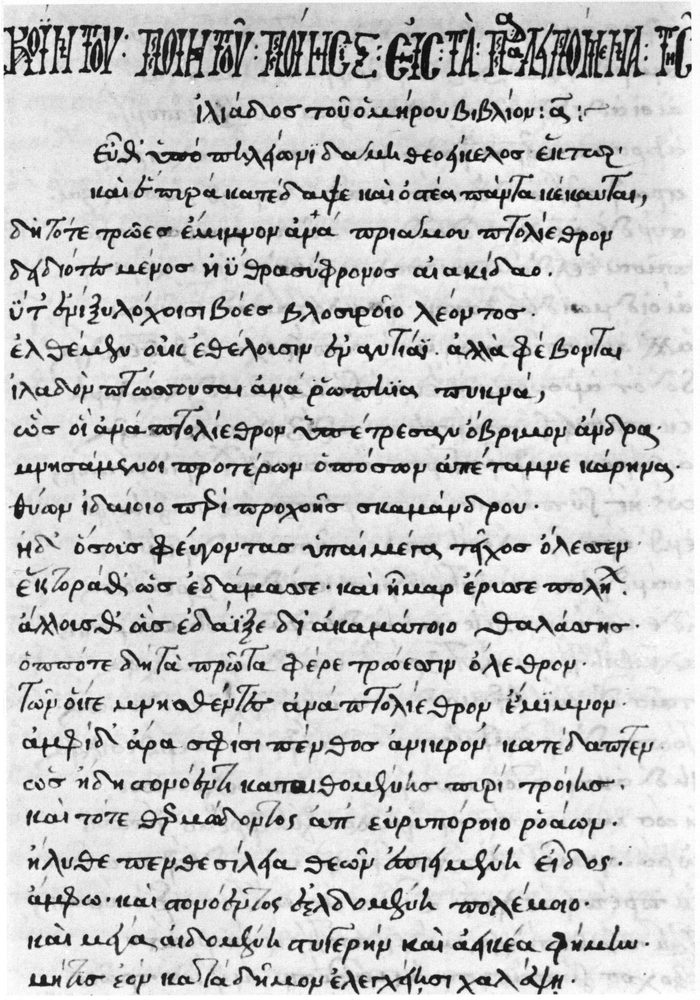 ΚΟΪΝΤΟΥ: ΠΟΙΗΤΟΥ: ΠΟΙΗΣΙΣ: ΕΙΣ ΤΑ: ΠΑΡΑΛΕΙΠΟΜΕΝΑ: ΤΗΣ
ἰλιάδος τοῦ ὁμήρου βιβλίον: α:
εὖθ' ὑπὸ πηλείωνι δάμη θεοείκελος ἕκτωρ·
καὶ ἑ πυρὰ κατέδαψε καὶ ὀστέα πάντα κέκαυται,
δὴ τότε τρῶες ἔμιμνον ἀνὰ πριάμου πτολίεθρον
δηδιότες μένος ἠῢ θρασύφρονος αἰακίδαο.
ΰτ' ἐνὶ ξυλόχοισι βόες βλοσυροῖο λέοντος.
ἐλθέμεν οὐκ ἐθέλουσιν ἐναντίαι. ἀλλὰ φέβονται
ἰλαδὸν πτώσσουσαι ἀνὰ ῥωπήϊα πυκνά,
ὣς οἱ ἀνὰ πτολίεθρον ὑπέτρεσαν ὄβριμον ἄνδρα
μνησάμενοι προτέρων ὁπόσων ἀπέταμνε κάρηνα·
θύων ἰδαίοιο περὶ προχοῇς σκαμάνδρου·
ἠδ' ὅσους φεύγοντας ὑπαὶ μέγα τεῖχος ὄλεσσεν·
ἕκτορά θ' ὡς ἐδάμασσε· καὶ ἤμαρ ἔρυσσε πόλη·
ἄλλους θ' ὡς ἐδάϊξε δι' ἀκαμάτοιο θαλάσσης·
ὁππότε δὴ τὰ πρῶτα φέρε τρώεσσιν ὄλεθρον·
τῶν οἵγε μνησθέντες ἀνὰ πτολίεθρον ἔμϊμνον·
ἀμφὶ δ' ἄρα σφίσι πένθος ἀνικρὸν κατέδαπτεν
ὡς ἤδη στονόεντι καταιθομένης πυρὶ τροίης·
καὶ τότε θερμώδοντος ἀπ' εὐρυπόροιο ῥοάων·
ἤλυθε πενθεσίλεια θεῶν ἐπιειμένη εἶδος·
ἄμφω· καὶ στονόεντος ἐελδομένη πολέμοιο·
καὶ μέγα αἰδομένη στυγερὴν καὶ ἀεικέα φήμην·
μήτις ἑὸν κατὰ δῆμον ἐλεγχείῃσι χαλέψῃ·